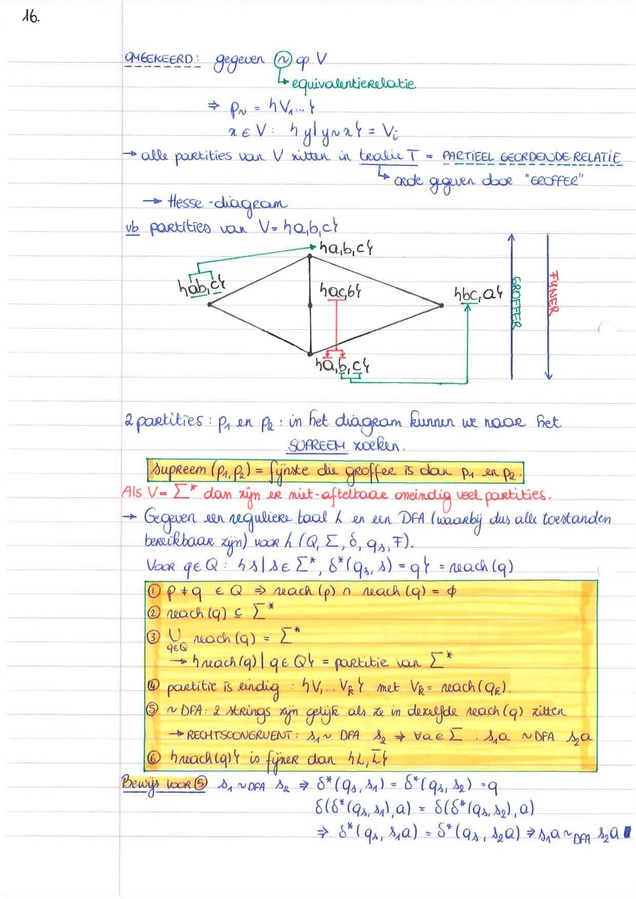 16.
OMGEKEERD: gegeven ~ op V
↳ equivalentierelatie
⇒ P~ = {V₁...}
x ∈ V: {y|y~x} = Vᵢ
→ alle partities van V zitten in tralie T = PARTIEEL GEORDENDE RELATIE
↳ orde gegeven door "GROFFER"
→ Hesse-diagram
vb partities van V={a,b,c}
{a,b,c}
{ab,c}
{ac,b}
{bc,a}
{a,b,c}
GROFFER
FIJNER
2 partities: p₁ en p₂: in het diagram kunnen we naar het
SUPREEM zoeken.
supreem (p₁,p₂) = fijnste die groffer is dan p₁ en p₂.
Als V = Σ* dan zijn er niet-aftelbaar oneindig veel partities.
→ Gegeven een reguliere taal L en een DFA (waarbij dus alle toestanden
bereikbaar zijn) voor L (Q, Σ, δ, qₛ, F).
Voor q∈Q: {s|s∈Σ*, δ*(qₛ,s) = q} = reach(q)
① p ≠ q ∈ Q ⇒ reach(p) ∩ reach(q) = ϕ
② reach(q) ⊆ Σ*
③ ⋃ reach(q) = Σ*
q∈Q
→ {reach(q)| q∈Q} = partitie van Σ*
④ partitie is eindig: {V₁...Vₖ} met Vₖ = reach(qₖ).
⑤ ~DFA: 2 strings zijn gelijk als ze in dezelfde reach(q) zitten
→ RECHTSCONGRUENT: s₁ ~DFA s₂ ⇒ ∀a∈Σ: s₁a ~DFA s₂a
⑥ {reach(q)} is fijner dan {L,L̅}
Bewijs voor ⑤ s₁ ~DFA s₂ ⇒ δ*(qₛ,s₁) = δ*(qₛ,s₂) = q
δ(δ*(qₛ,s₁),a) = δ(δ*(qₛ,s₂),a)
⇒ δ*(qₛ,s₁a) = δ*(qₛ,s₂a) ⇒ s₁a ~DFA s₂a ∎